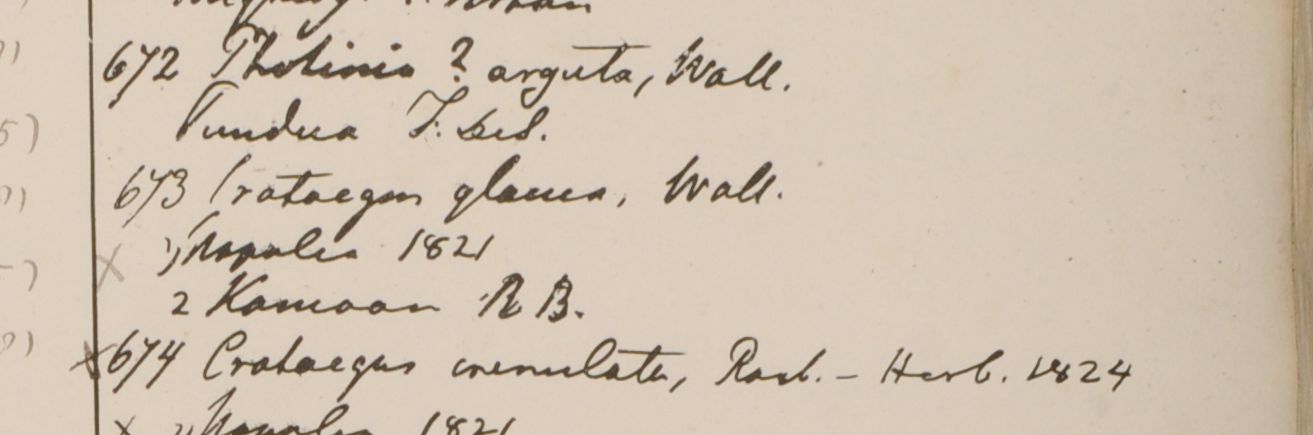 672 Photinia ? arguta, Wall.
Pundua F. de S.
673 Crataegus glauca, Wall.
1 Napalia 1821
2 Kamoon R B.
674 Crataegus crenulata, Roxb. - Herb. 1824
Napalia 1821